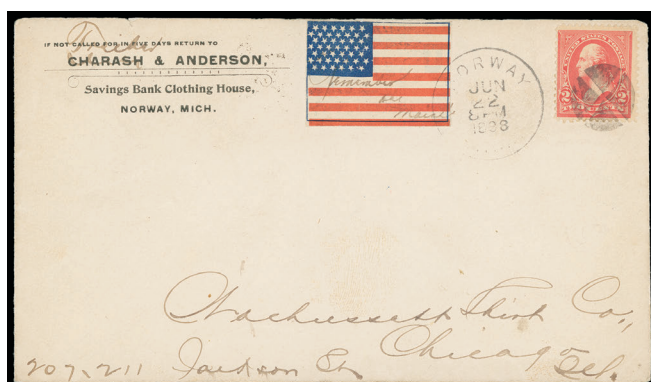 IF NOT CALLED FOR IN FIVE DAYS RETURN TO
CHARASH & ANDERSON,
Savings Bank Clothing House,
NORWAY, MICH.
Remember
the
Maine
NORWAY
JUN
22
8PM
1898
UNITED STATES POSTAGE
2 2
Wachusett Shirt Co.,
207, 211 Jackson St.
Chicago
Ill.